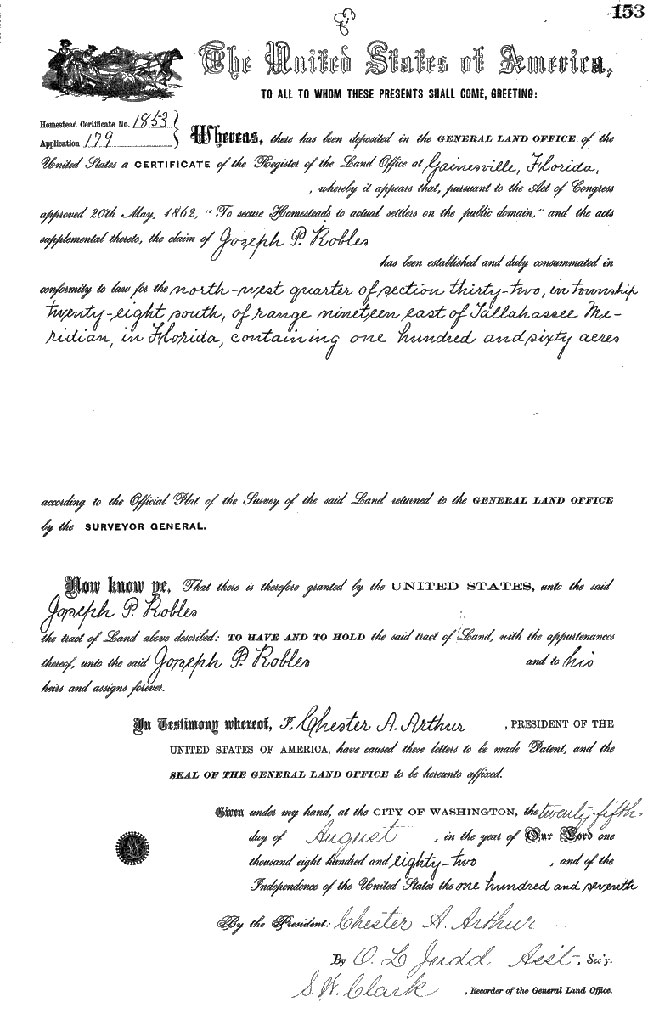 153
The United States of America,
TO ALL TO WHOM THESE PRESENTS SHALL COME, GREETING:
Homestead Certificate No. 1853
Application 179
Whereas, there has been deposited in the GENERAL LAND OFFICE of the
United States a CERTIFICATE of the Register of the Land Office at Gainesville, Florida,
, whereby it appears that, pursuant to the Act of Congress
approved 20th May, 1862, "To secure Homesteads to actual settlers on the public domain," and the acts
supplemental thereto, the claim of Joseph P. Robles
has been established and duly consummated in
conformity to law for the north-west quarter of section thirty-two, in township
twenty-eight south, of range nineteen east of Tallahassee Me-
ridian, in Florida, containing one hundred and sixty acres
according to the Official Plat of the Survey of the said Land returned to the GENERAL LAND OFFICE
by the SURVEYOR GENERAL.
Now know ye, That there is therefore granted by the UNITED STATES, unto the said
Joseph P. Robles
the tract of Land above described: TO HAVE AND TO HOLD the said tract of Land, with the appurtenances
thereof, unto the said Joseph P. Robles and to his
heirs and assigns forever.
In Testimony whereof, I, Chester A. Arthur , PRESIDENT OF THE
UNITED STATES OF AMERICA, have caused these letters to be made Patent, and the
SEAL OF THE GENERAL LAND OFFICE to be hereunto affixed.
Given under my hand, at the CITY OF WASHINGTON, the twenty fifth
day of August , in the year of Our Lord one
thousand eight hundred and eighty-two , and of the
Independence of the United States the one hundred and seventh
By the President: Chester A. Arthur
By O. L. Judd Asst. Sec'y.
S. W. Clark , Recorder of the General Land Office.